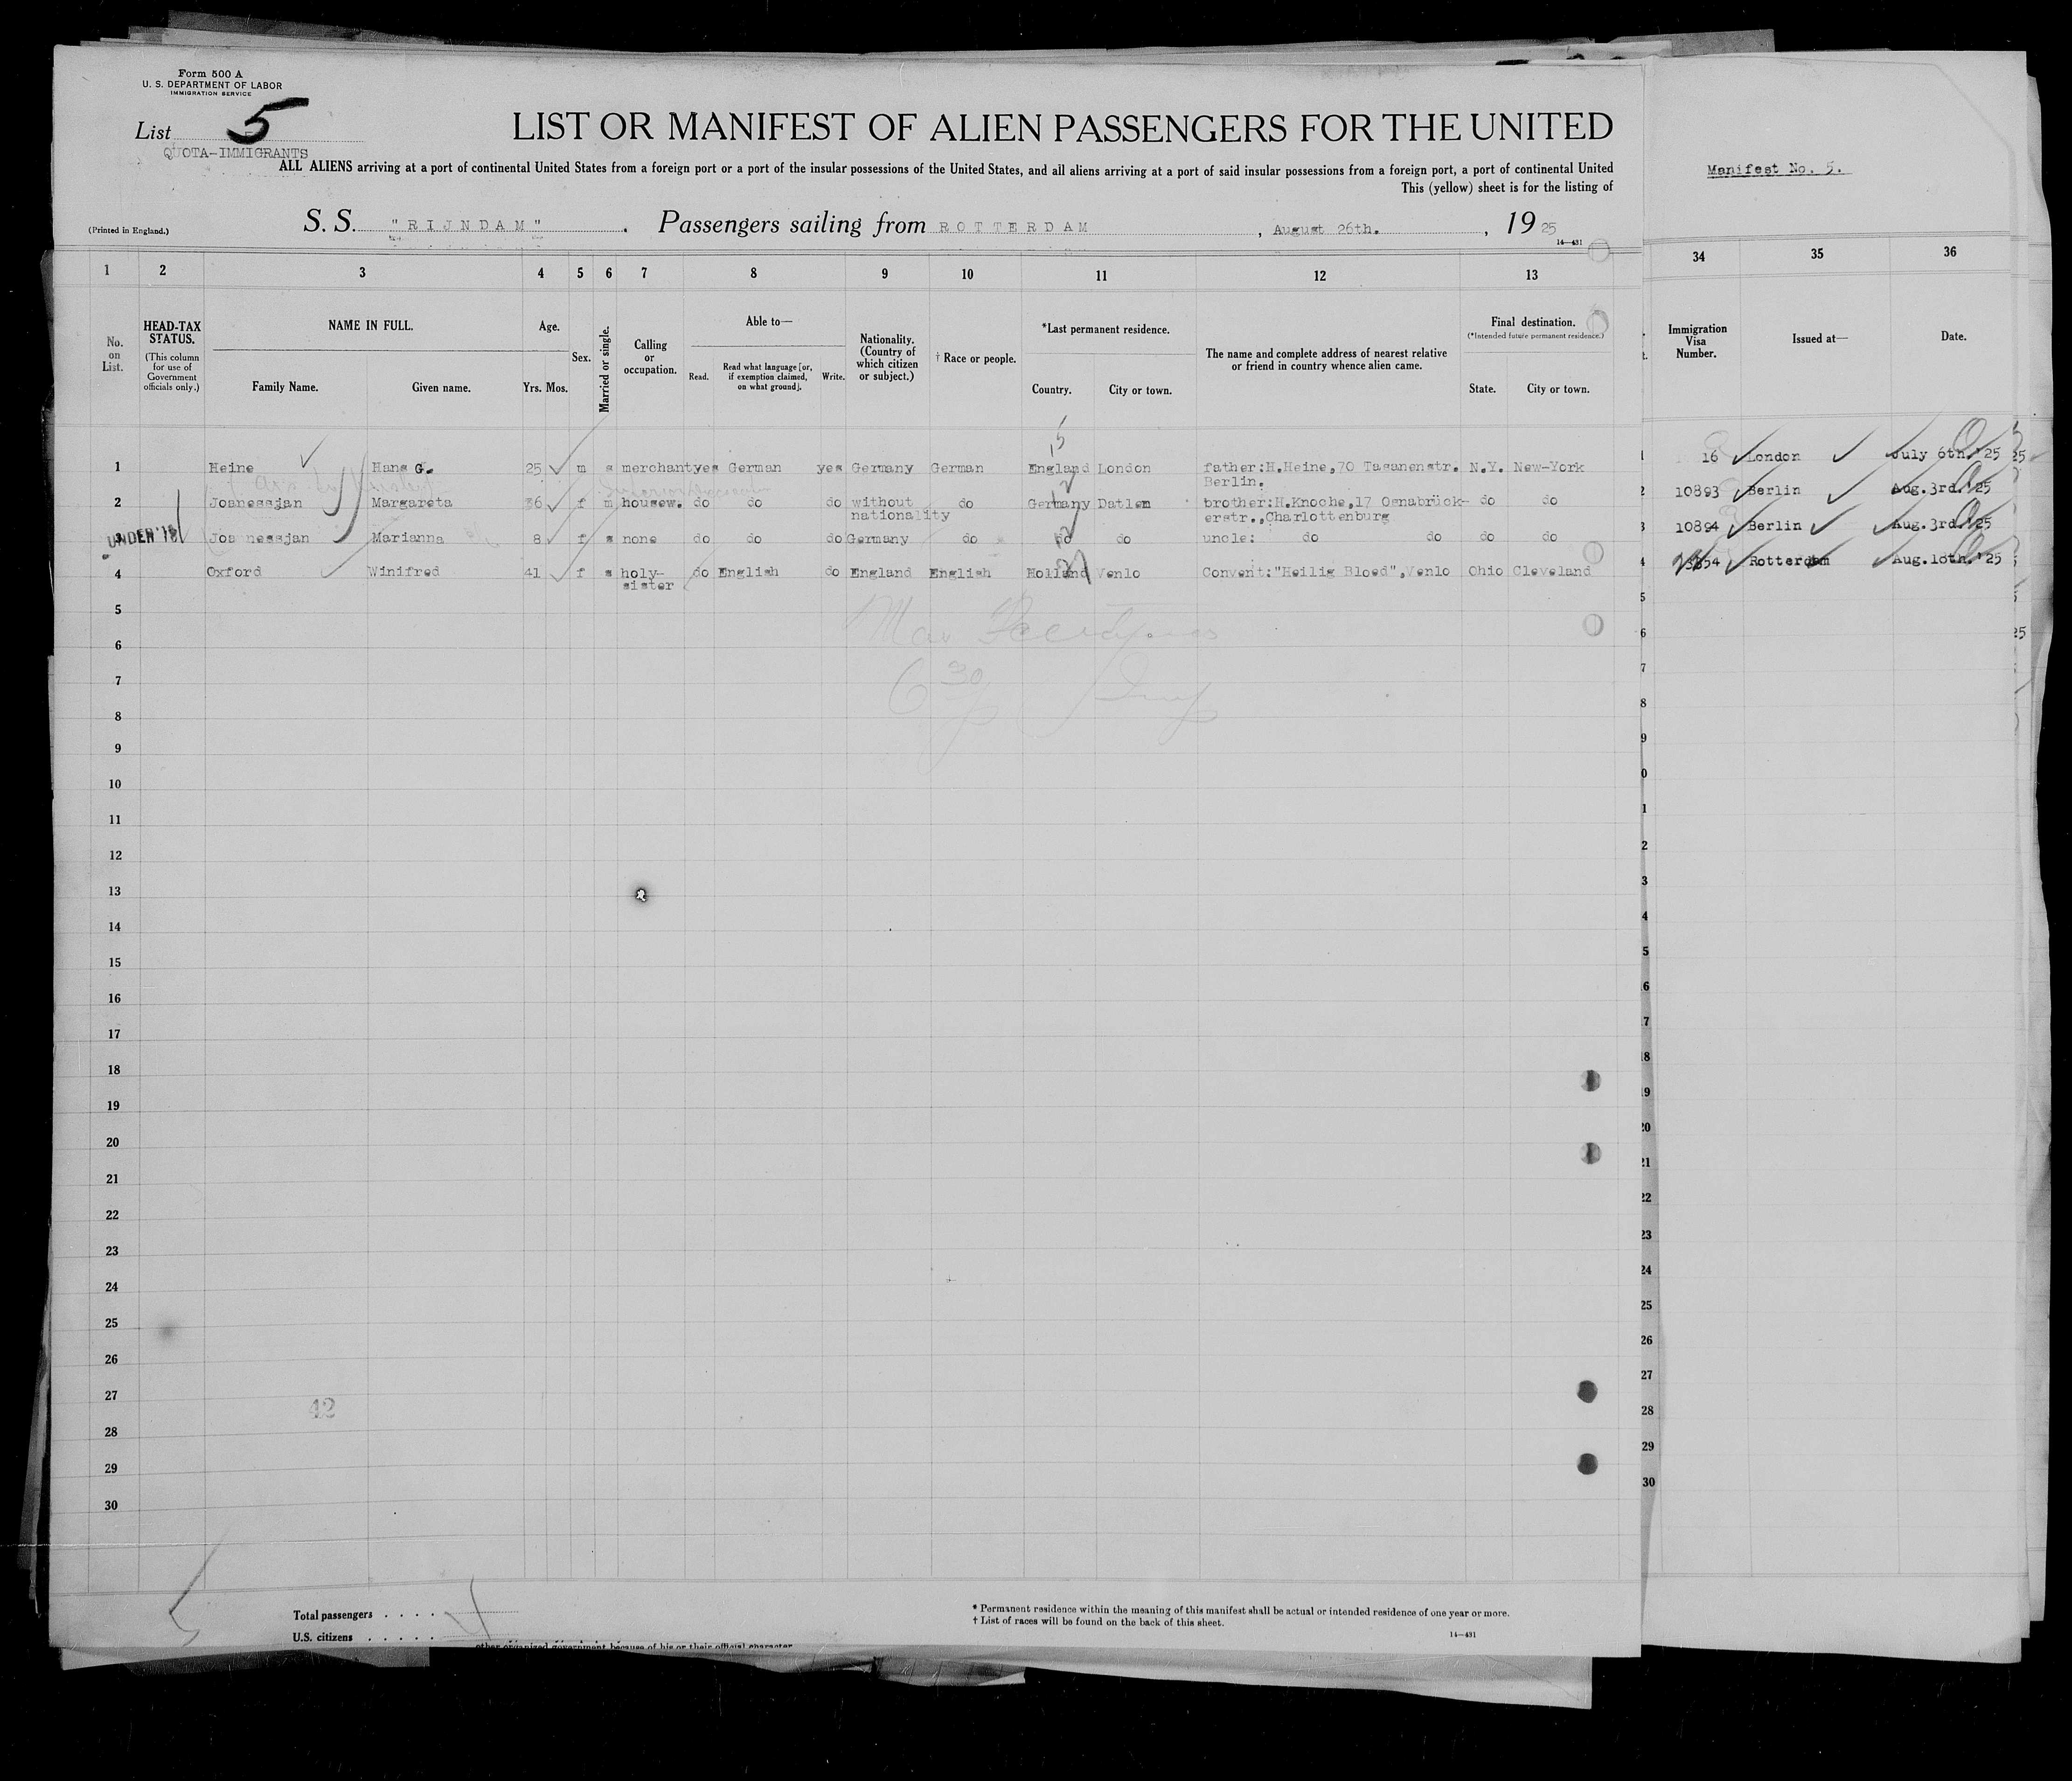 Form 500 A
U. S. DEPARTMENT OF LABOR
IMMIGRATION SERVICE
List 5
QUOTA-IMMIGRANTS
LIST OR MANIFEST OF ALIEN PASSENGERS FOR THE UNITED
ALL ALIENS arriving at a port of continental United States from a foreign port or a port of the insular possessions of the United States, and all aliens arriving at a port of said insular possessions from a foreign port, a port of continental United
This (yellow) sheet is for the listing of
Manifest No. 5.
(Printed in England.)
S. S. "RIJNDAM" . Passengers sailing from ROTTERDAM , August 26th. , 19 25
14—431
1 2 3 4 5 6 7 8 9 10 11 12 13 34 35 36
No. on List.
HEAD-TAX STATUS.
(This column for use of Government officials only.)
NAME IN FULL.
Family Name. Given name.
Age.
Yrs. Mos.
Sex.
Married or single.
Calling or occupation.
Able to—
Read. Read what language [or, if exemption claimed, on what ground]. Write.
Nationality. (Country of which citizen or subject.)
† Race or people.
*Last permanent residence.
Country. City or town.
The name and complete address of nearest relative or friend in country whence alien came.
Final destination.
(*Intended future permanent residence.)
State. City or town.
Immigration Visa Number.
Issued at—
Date.
1 Heine Hans G. 25 m s merchant yes German yes Germany German England London father:H.Heine,70 Tasanenstr. N.Y. New-York 16 London July 6th.'25
Berlin.
2 Joanessjan Margareta 36 f m housew. do do do without do Germany Datlen brother:H.Knoche,17 Osnabrück- do do 10893 Berlin Aug.3rd.'25
nationality erstr.,Charlottenburg
UNDER 16
3 Joanessjan Marianna 8 f s none do do do Germany do do do uncle: do do do do 10894 Berlin Aug.3rd.'25
4 Oxford Winifred 41 f s holy- do English do England English Holland Venlo Convent:"Heilig Bloed",Venlo Ohio Cleveland Rotterdam Aug.18th.'25
sister
5
6
6 30
7
8
9
10
11
12
13
14
15
16
17
18
19
20
21
22
23
24
25
26
27
42
28
29
30
Total passengers . . . .
U.S. citizens . . . . .
* Permanent residence within the meaning of this manifest shall be actual or intended residence of one year or more.
† List of races will be found on the back of this sheet.
14—431
other organized government because of his or their official character